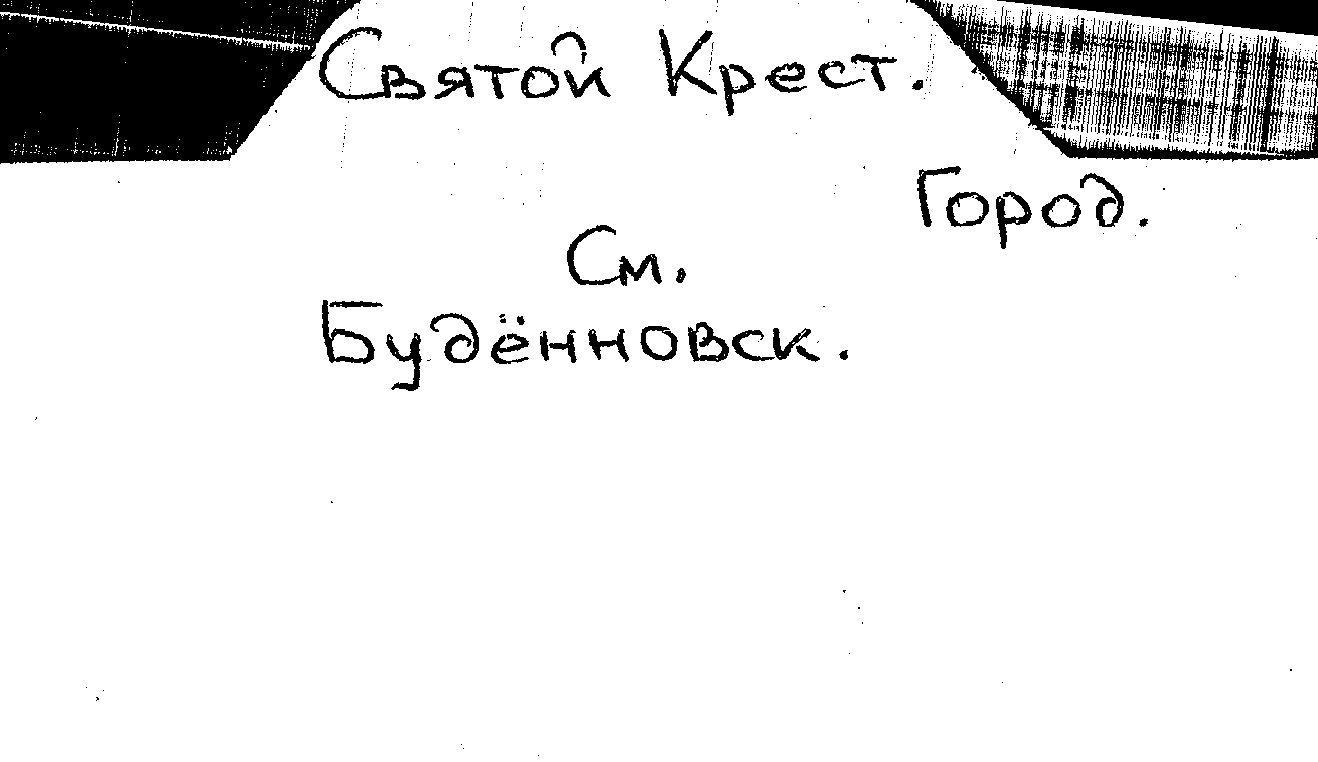 Святой Крест.
Город.
См.
Будённовск.